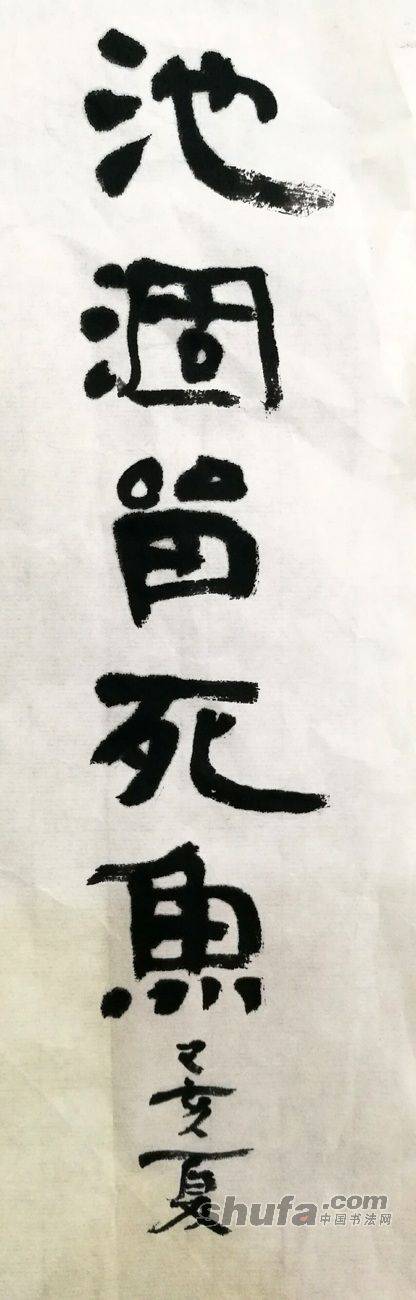 池涸留死魚
己亥夏
shufa.com
中国书法网